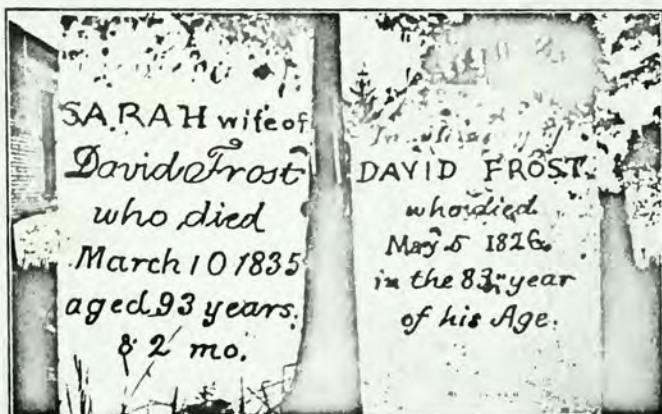 SARAH wife of
David Frost
who died
March 10 1835
aged 93 years.
& 2 mo.
In memory of
DAVID FROST.
who died
May 5 1826.
in the 83d year
of his Age.